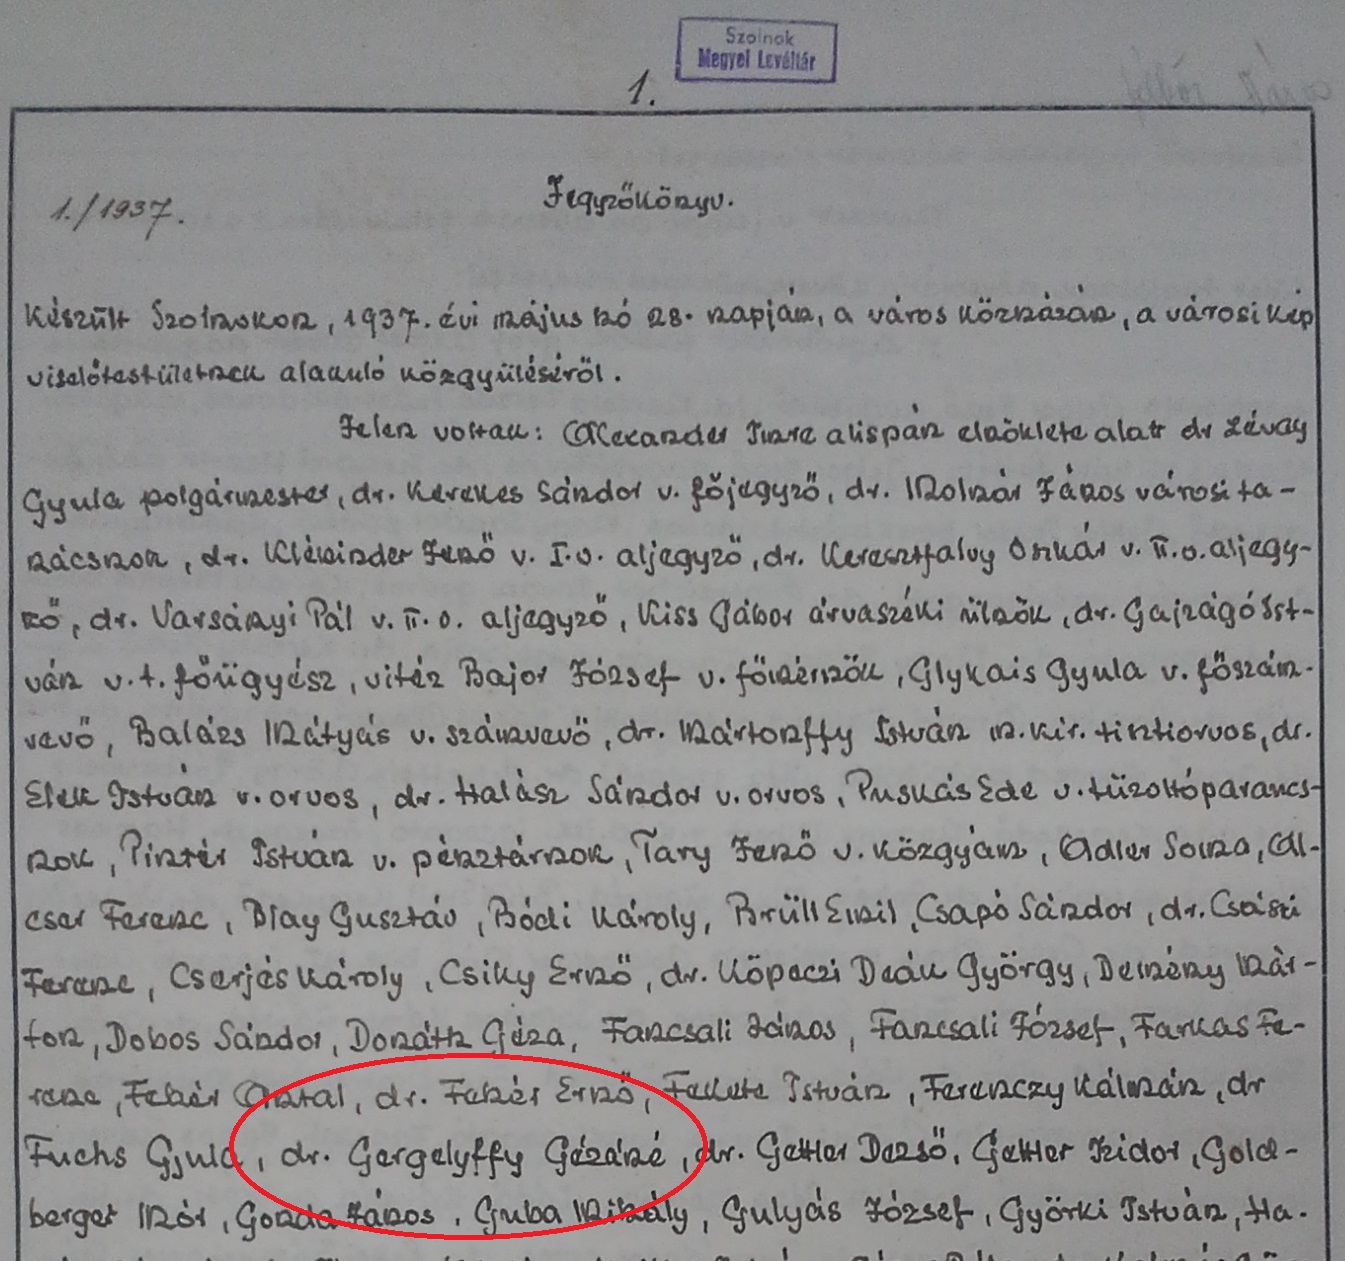 Szolnok
Megyei Levéltár
1.
1./1937.
Jegyzőkönyv.
Készült Szolnokon, 1937. évi május hó 28. napján, a város közházán, a városi kép
viselőtestületnek alakuló közgyüléséről.
Jelen voltak: Alexander Imre alispán elnöklete alatt dr Lévay
Gyula polgármester, dr. Kerekes Sándor v. főjegyző, dr. Molnár János városi ta-
nácsnok, dr. Klévinder Jenő v. I. o. aljegyző, dr. Keresztfalvy Oszkár v. II. o. aljegy-
ző, dr. Varsányi Pál v. II. o. aljegyző, Kiss Gábor árvaszéki ülnök, dr. Gajzágó Ist-
ván v. t. főügyész, vitéz Bajor József v. főmérnök, Glykais Gyula v. főszám-
vevő, Balázs Mátyás v. számvevő, dr. Mártonffy István m. kir. tisztiorvos, dr.
Elek István v. orvos, dr. Halász Sándor v. orvos, Puskás Ede v. tüzoltóparancs-
nok, Pintér István v. pénztárnok, Tary Jenő v. közgyám, Adler Soma, Al-
cser Ferenc, Blay Gusztáv, Bódi Károly, Brüll Emil, Csapó Sándor, dr. Császi
Ferenc, Cserjés Károly, Csiky Ernő, dr. Köpeczi Deák György, Demény Már-
ton, Dobos Sándor, Donáth Géza, Fancsali János, Fancsali József, Farkas Fe-
renc, Fehér Antal, dr. Fehér Ernő, Fekete István, Ferenczy Kálmán, dr
Fuchs Gyula, dr. Gergelyffy Gézáné, dr. Gettler Dezső, Gettler Izidor, Gold-
berger Mór, Gonda János, Guba Mihály, Gulyás József, Györki István, Ha-